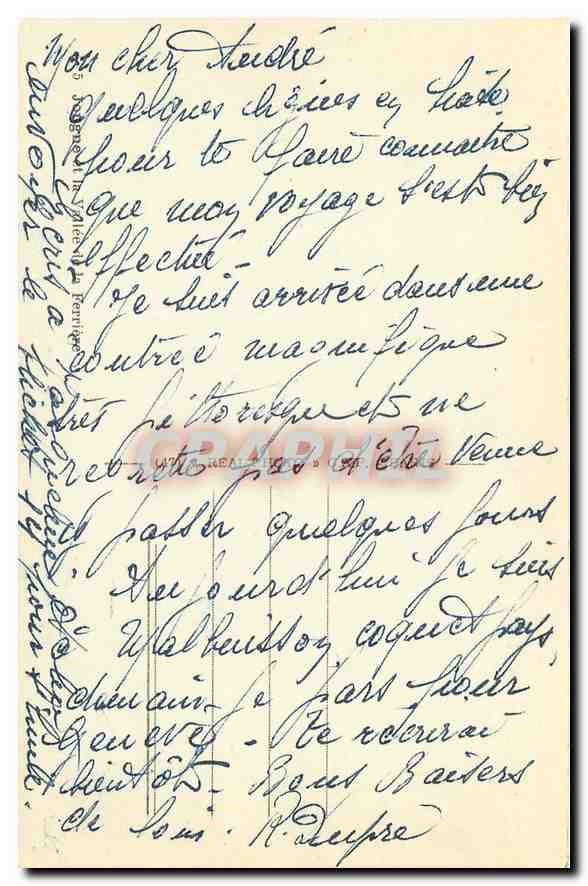 Mon cher André
quelques lignes en hâte
pour te faire connaitre
que mon voyage s'est bien
effectué -
Je suis arrivée dans une
contrée magnifique
très pittoresque et ne
regrette pas d'être venue
y passer quelques jours
Aujourd'hui je suis
Malbuisson coquet pays
demain je pars pour
Genève - Te récrirai
bientôt - Bons Baisers
de loin. R. Dupré
Ecris à
envoyer le pour
5 Jougne et la Vallée de la Ferrière
« REAL-PHOTO »
CARAPHIL